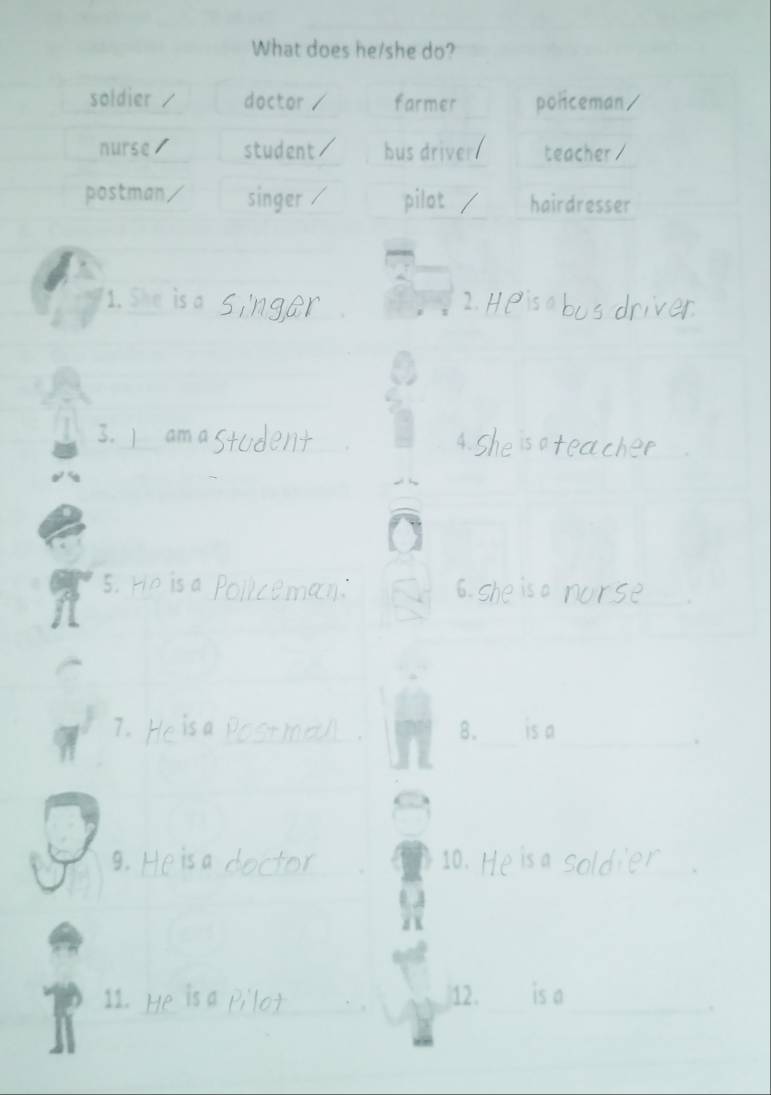 What does he/she do?
soldier / doctor / farmer policeman /
nurse / student / bus driver / teacher /
postman / singer / pilot / hairdresser
1. She is a singer.
2. He is a bus driver.
3. I am a student.
4. She is a teacher.
5. He is a Policeman.
6. She is a nurse.
7. He is a Postman.
8. ___ is a ___.
9. He is a doctor.
10. He is a soldier.
11. He is a Pilot.
12. ___ is a ___.